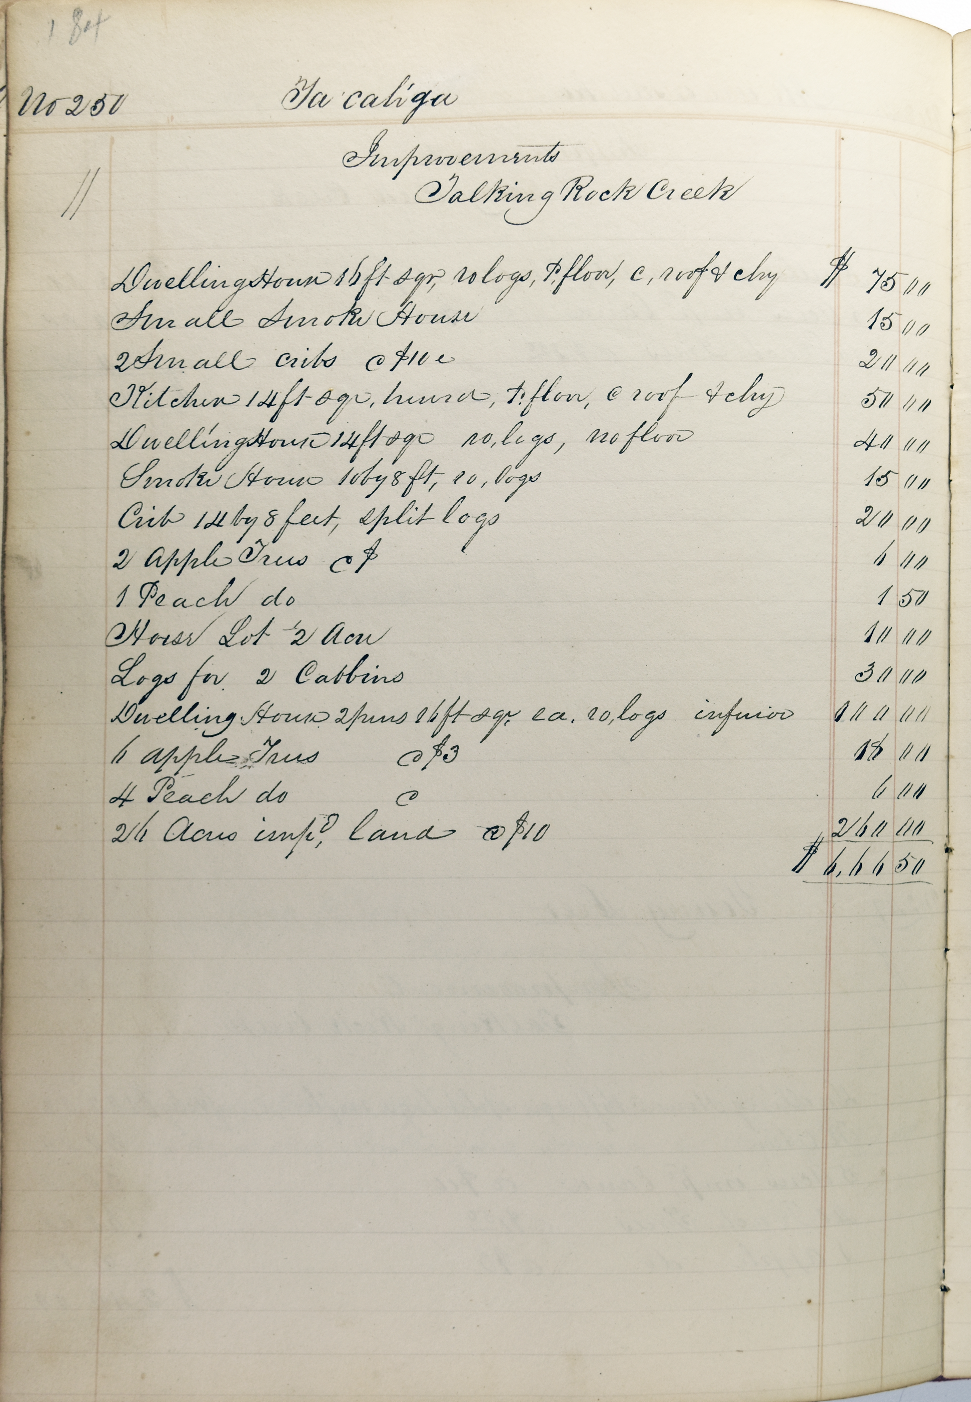 184
No 250 Ta cali'ga
Improvements
Talking Rock Creek
11
Dwelling House 16 ft sqr, ro logs, P. floor, c, roof & chy $ 75 00
Small Smoke House 15 00
2 Small cribs @ $10 e 20 00
Kitchen 14 ft sqr, hewd, P. floor, c roof & chy 50 00
Dwelling House 14 ft sqr ro, logs, no floor 40 00
Smoke House 10 by 8 ft, ro, logs 15 00
Crib 14 by 8 feet, split logs 20 00
2 Apple Trees @ $ 6 00
1 Peach do 1 50
Horse Lot ½ Acre 10 00
Logs for 2 Cabbins 30 00
Dwelling House 2 pens 16 ft sqr ea. ro, logs inferior 100 00
6 apple Trees @ $3 18 00
4 Peach do @ 6 00
26 Acres impd, land @ $10 260 00
$ 6,66 50